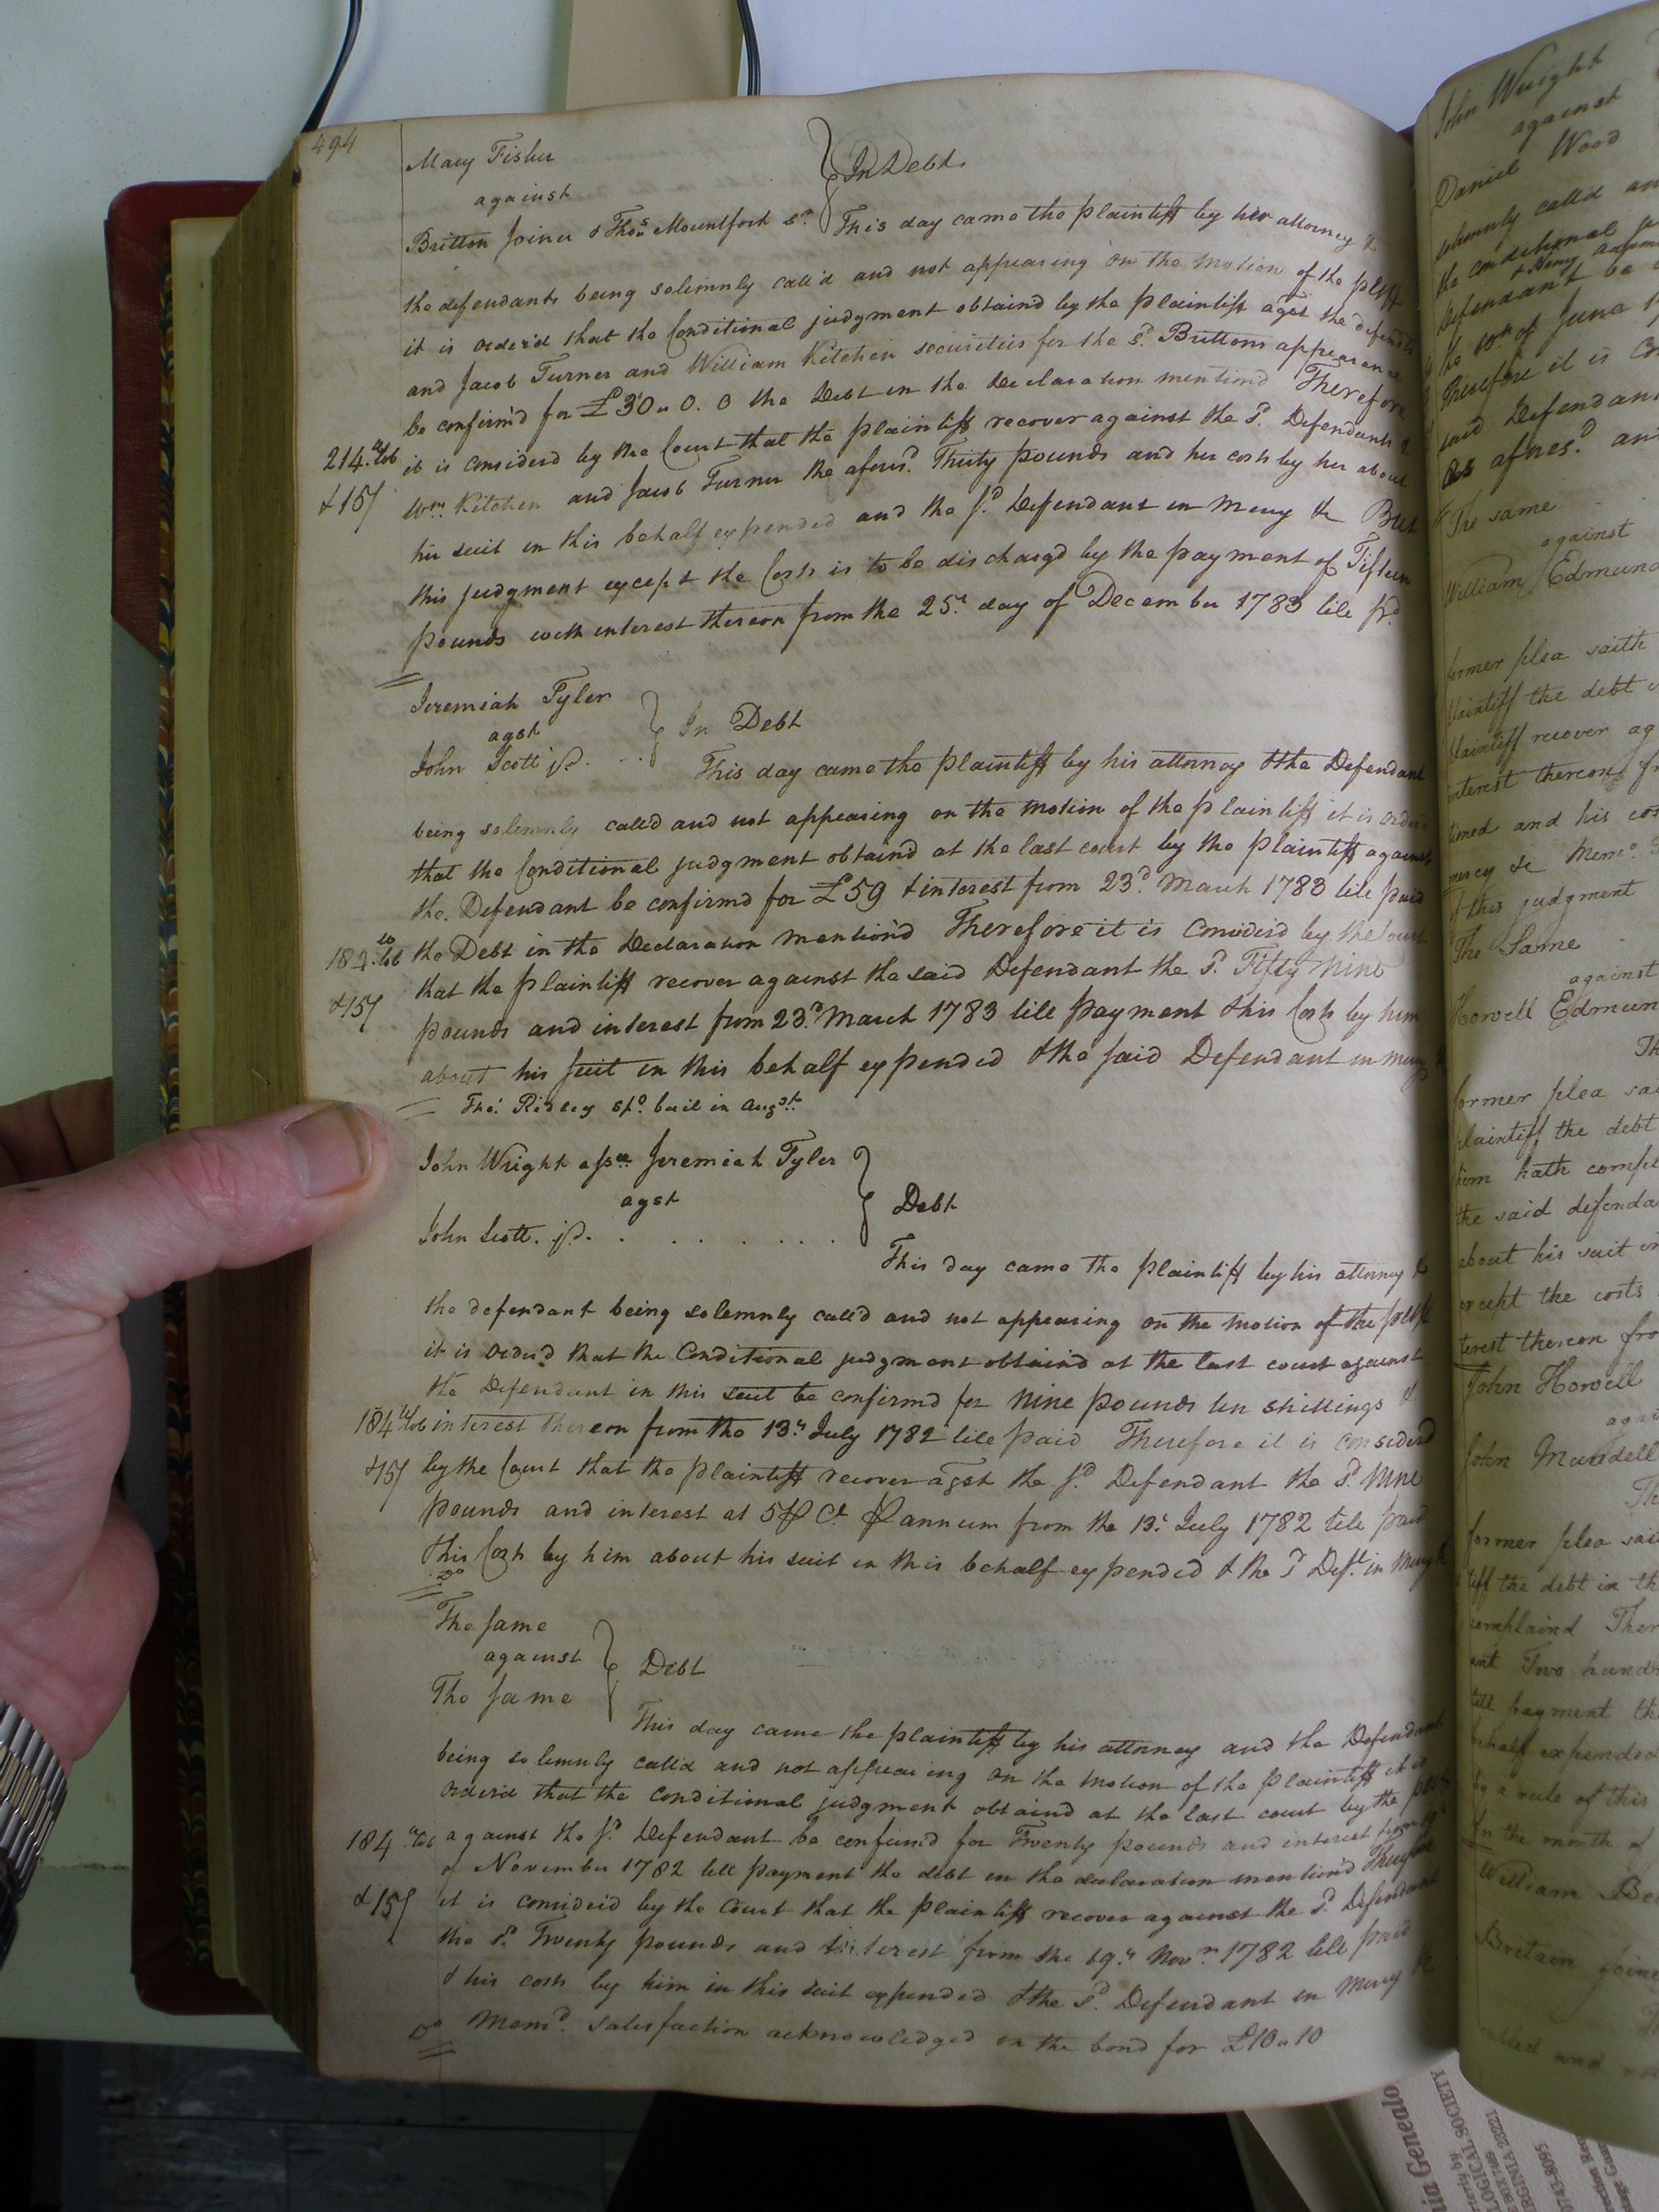 494
Mary Fisher
against
Britton Joiner & Thos. Mountfort sr.
In Debt
This day came the plaintiff by her attorney &
the defendants being solemnly call'd and not appearing on the motion of the pltff
it is order'd that the Conditional judgment obtain'd by the plaintiff agst the defendts
and Jacob Turner and William Kitchen securities for the sd. Brittons appearance
be confirm'd for £30 " 0. 0 the Debt in the Declaration mention'd Therefore
it is considerd by the Court that the plaintiff recover against the sd. Defendants &
214. lb
& 15/
Wm. Kitchen and Jacob Turner the aforesd. Thirty pounds and her costs by her about
her suit in this behalf expended and the sd. Defendant in mercy &c But
this judgment except the Costs is to be discharg'd by the payment of Fifteen
pounds with interest thereon from the 25.th day of December 1783 till pd.
Jeremiah Tyler
agst
John Scott jr.
In Debt
This day came the plaintiff by his attorney & the Defendant
being solemnly call'd and not appearing on the motion of the plaintiff it is order'd
that the Conditional judgment obtain'd at the last court by the plaintiff against
the Defendant be confirm'd for £59 & interest from 23d. March 1783 till paid
the Debt in the Declaration mention'd Therefore it is Considerd by the Court
lb
& 15/
that the plaintiff recover against the said Defendant the sd. Fifty Nine
pounds and interest from 23d. March 1783 till payment & his Costs by him
about his suit in this behalf expended & the said Defendant in mercy &
Tho. Ridley spo. bail in Augst.
John Wright assee Jeremiah Tyler
agst
John Scott. jr. . . . . . . .
Debt
This day came the plaintiff by his attorney &
the defendant being solemnly call'd and not appearing on the motion of the pltff
it is order'd that the Conditional judgment obtain'd at the last court against
the Defendant in this suit be confirm'd for Nine pounds ten shillings &
184 lb
interest thereon from the 13.th July 1782 till paid Therefore it is considerd
& 15/
by the Court that the plaintiff recover agst the sd. Defendant the sd. Nine
pounds and interest at 5 P Ct. P annum from the 13.th July 1782 till paid
& his Costs by him about his suit in this behalf expended & the sd Deft. in mercy &
Do
The same
against
The same
Debt
This day came the plaintiff by his attorney and the Defendant
being solemnly call'd and not appearing on the motion of the plaintiff it is
order'd that the conditional judgment obtain'd at the last court by the pltff
184 lb
against the sd. Defendant be confirm'd for Twenty pounds and interest from
of November 1782 till payment the debt in the declaration mention'd Therefore
& 15/
it is consider'd by the Court that the plaintiff recover against the sd. Defendant
the sd. Twenty pounds and interest from the 19.th Novr. 1782 till paid
& his costs by him in this suit expended & the sd. Defendant in mercy &c
Do
Memd. satisfaction acknowledged on the bond for £10 " 10
John Wright
against
Daniel Wood
solemnly call'd an
the conditional
Defendant be
the 10th of June 1
Therefore it is Con
said Defendan
afores.d an
The same
against
William Edmund
former plea saith
plaintiff the debt
plaintiff recover ag
interest thereon fr
and his cos
mercy &c Memo.
this judgment
The Same
against
Howell Edmun
Th
former plea sai
plaintiff the debt
him hath compl
the said defenda
about his suit in
except the costs
terest thereon fro
John Howell
agai
John Mandell
Th
former plea sai
tiff the debt in th
complaind. Ther
ant Two hundr
till payment th
behalf expended
by a rule of this
In the month of
William Be
Britain Joine
called and no
ia Genealo
LOGICAL SOCIETY
BOX
RGINIA 23221